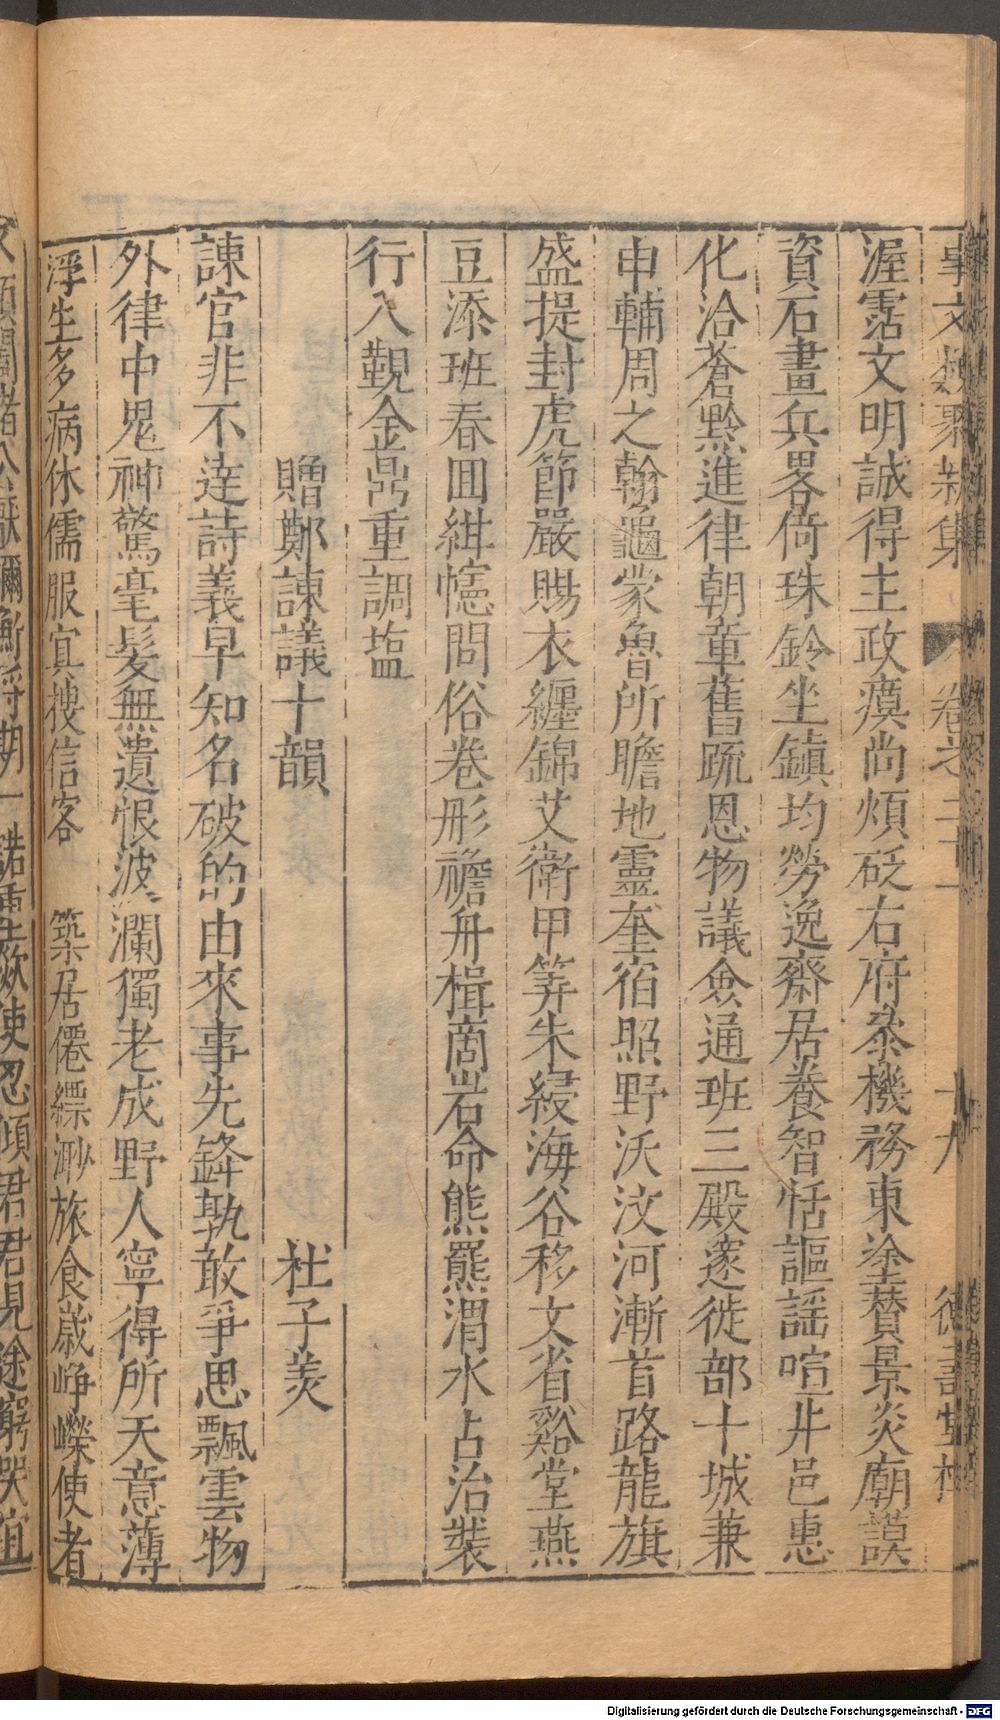 事文類聚新集 卷之二十一 十九 德壽堂梓
渥霑文明誠得主政瘼尚煩砭右府叅機務東塗賛景炎廟謨
資石畫兵畧倚珠鈐坐鎮均勞逸齋居養智恬謳謡喧井邑惠
化洽蒼黔進律朝章舊疏恩物議僉通班三殿邃徙部十城兼
申輔周之翰龜蒙魯所瞻地靈奎宿照野沃汶河漸首路龍旗
盛提封虎節嚴賜衣纏錦艾衛甲笄朱綅海谷移文省谿堂燕
豆添班春囬紺幰問俗卷彤襜舟楫商岩命熊羆渭水占治裝
行入覲金鼎重調塩
贈鄭諫議十韻 杜子羙
諫官非不逹詩義早知名破的由來事先鋒孰敢爭思飄雲物
外律中鬼神驚毫髪無遺恨波瀾獨老成野人寧得所天意薄
浮生多病休儒服宜搜信客 築居僊縹渺旅食歲崢嶸使者
求顔闔諸公厭禰衡將期一諾重歘使忍傾君君見途窮哭宜
Digitalisierung gefördert durch die Deutsche Forschungsgemeinschaft - DFG